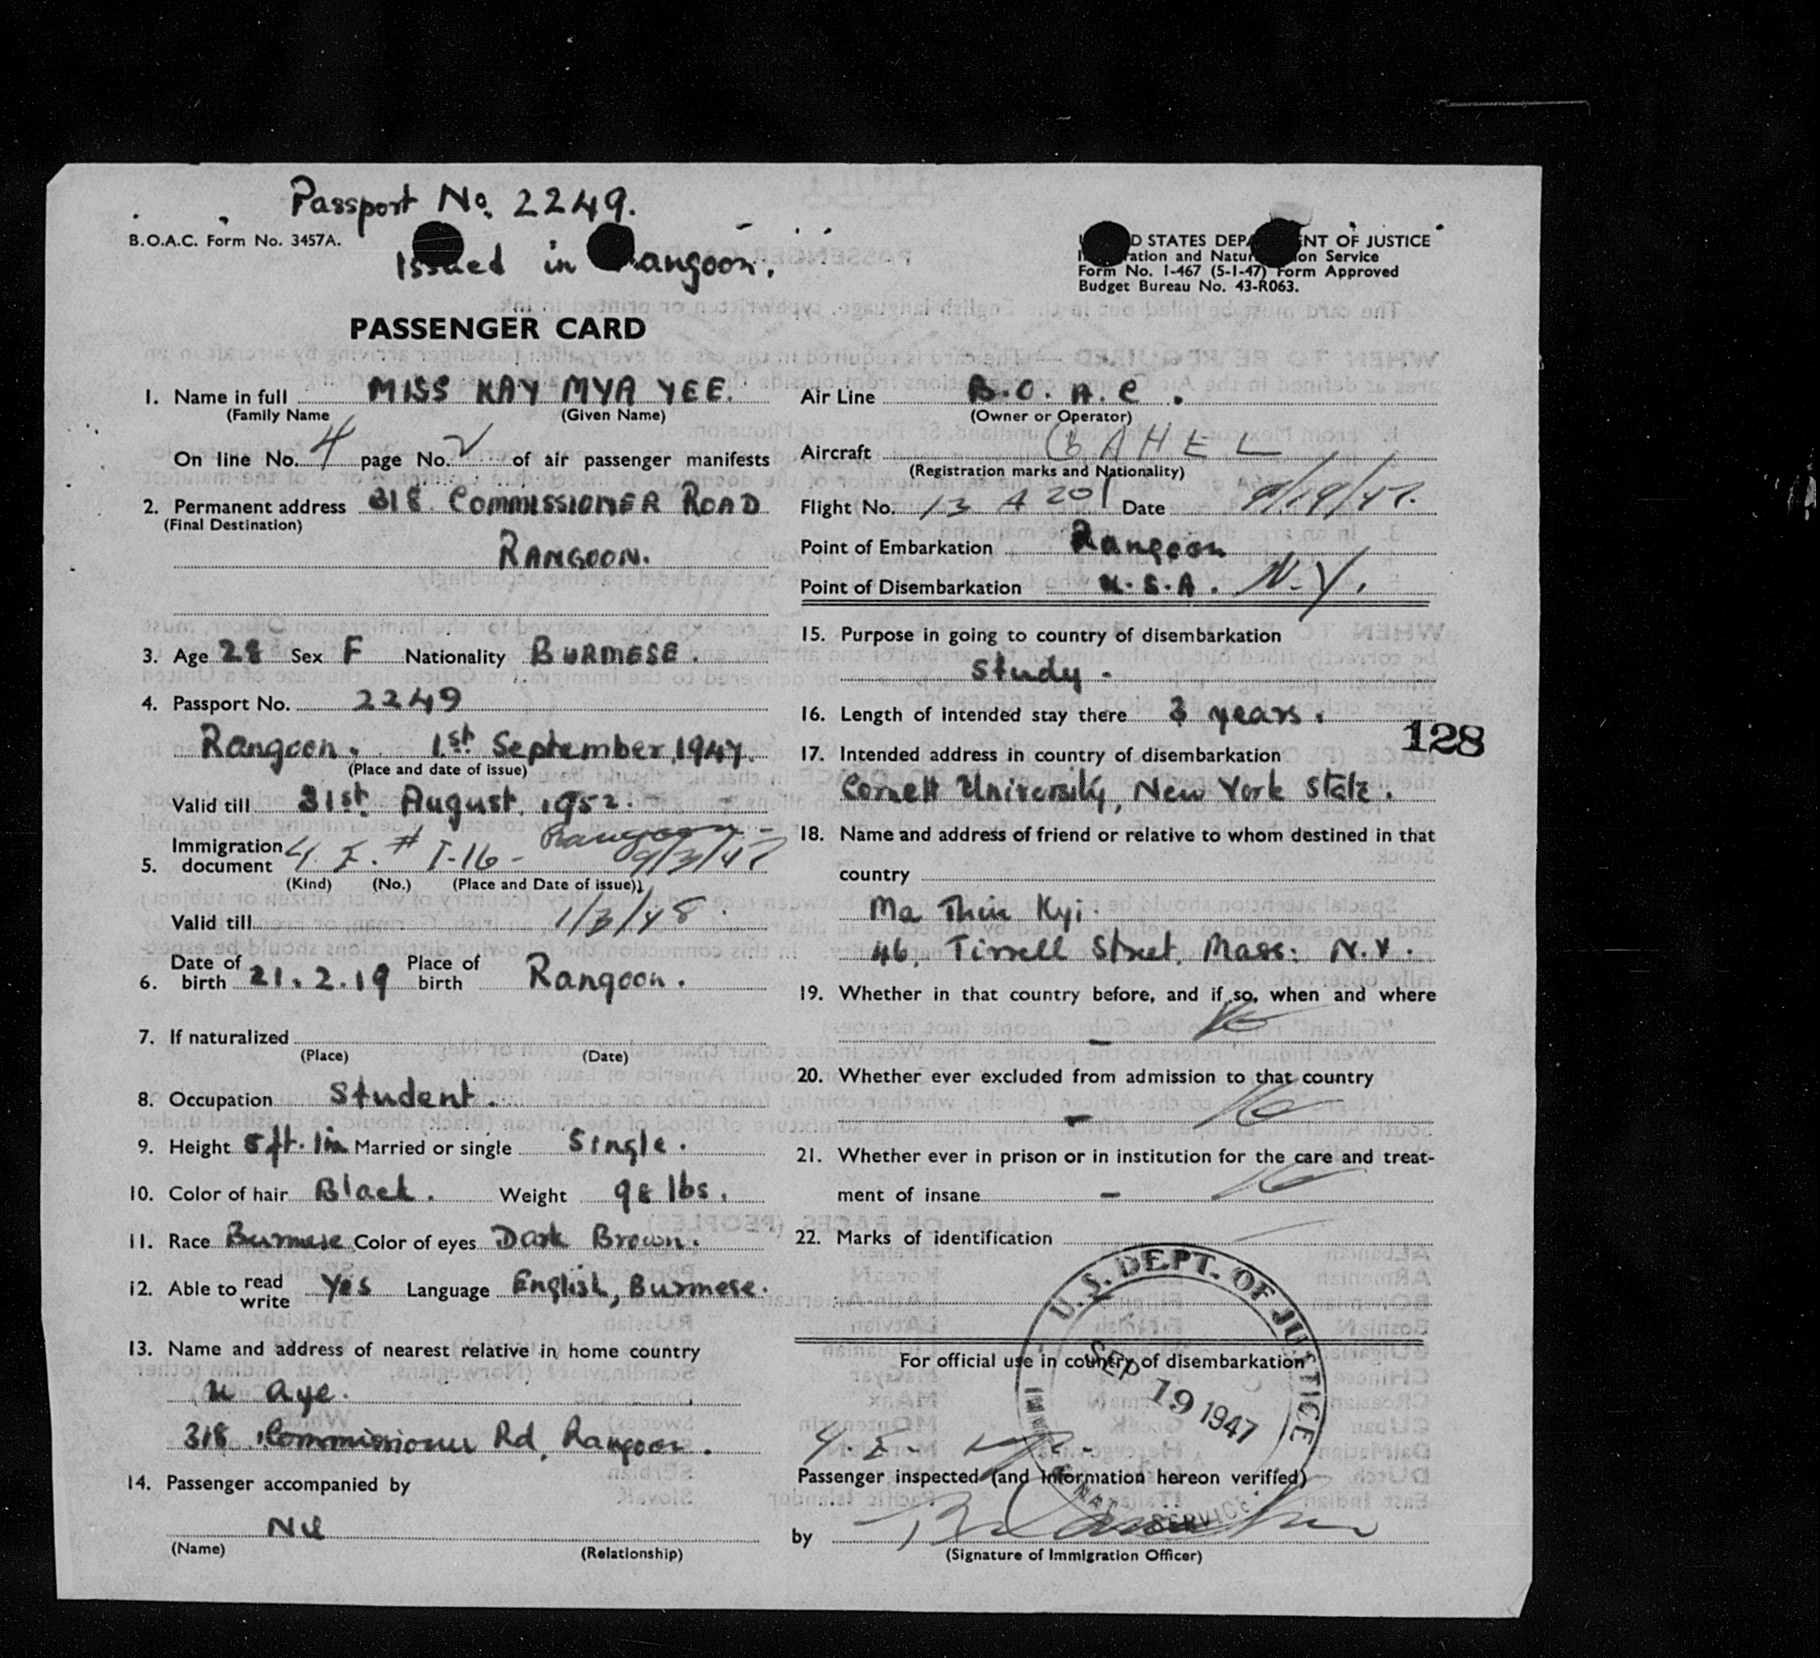 Passport No. 2249.
B.O.A.C. Form No. 3457A.
Issued in Rangoon.
STATES DEPA NT OF JUSTICE
ration and Natur on Service
Form No. I-467 (5-1-47) Form Approved
Budget Bureau No. 43-R063.
PASSENGER CARD
1. Name in full MISS KAY MYA YEE.
(Family Name (Given Name)
On line No. 4 page No. 2 of air passenger manifests
2. Permanent address 318 COMMISSIONER ROAD
(Final Destination)
RANGOON.
3. Age 28 Sex F Nationality BURMESE.
4. Passport No. 2249
Rangoon. 1st September, 1947.
(Place and date of issue)
Valid till 31st August, 1952.
Rangoon -
5. Immigration document 4 E. # I-16 - 9/3/47
(Kind) (No.) (Place and Date of issue)
Valid till 1/3/48.
6. Date of birth 21.2.19 Place of birth Rangoon.
7. If naturalized
(Place) (Date)
8. Occupation Student.
9. Height 5ft. 1in Married or single Single.
10. Color of hair Black. Weight 98 lbs.
11. Race Burmese Color of eyes Dark Brown.
12. Able to read write Yes Language English, Burmese.
13. Name and address of nearest relative in home country
U Aye.
318 Commissioner Rd, Rangoon.
14. Passenger accompanied by
Nil
(Name) (Relationship)
Air Line B.O.A.C.
(Owner or Operator)
Aircraft GAHEL
(Registration marks and Nationality)
Flight No. 13 A 201 Date 9/19/47.
Point of Embarkation Rangoon
Point of Disembarkation U.S.A. N.Y.
15. Purpose in going to country of disembarkation
Study -
16. Length of intended stay there 3 years.
128
17. Intended address in country of disembarkation
Cornell University, New York State.
18. Name and address of friend or relative to whom destined in that
country
Ma Thin Kyi.
46, Tirrell Street, Mass: N.Y.
19. Whether in that country before, and if so, when and where
- No
20. Whether ever excluded from admission to that country
- No
21. Whether ever in prison or in institution for the care and treat-
ment of insane - No
22. Marks of identification
U.S. DEPT. OF JUSTICE
For official use in country of disembarkation
SEP 19 1947
4. E-
Passenger inspected (and information hereon verified)
SERVICE
by
(Signature of Immigration Officer)